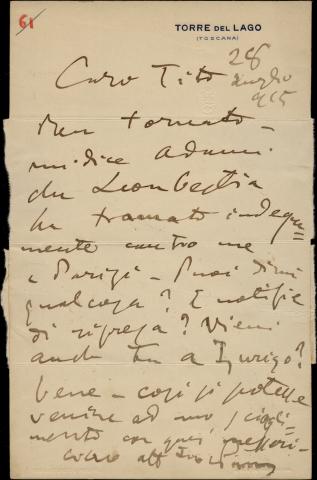 61
TORRE DEL LAGO
(TOSCANA)
28
luglio
915
Caro Tito
ben tornato –
mi dice Adami
che Leon Bestia
ha tramato indegna=
mente contro me
a Parigi – Puoi dirmi
qualcosa? E notizie
di ripresa? Vieni
anche tu a Zurigo?
bene – così si potesse
venire ad uno sciogli=
mento con quei